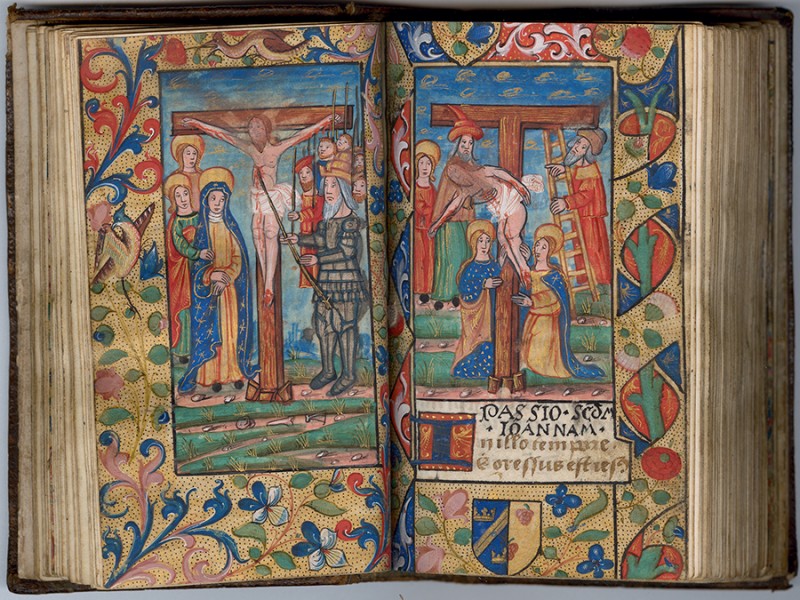 PASSIO · SCDM
· IOANNAM ·
In illo tempore.
Egressus est ies